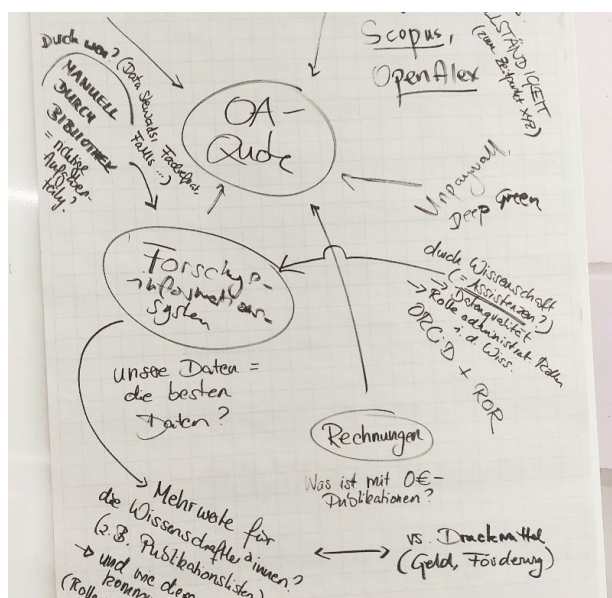 Scopus,
OpenAlex
VOLLSTÄNDIGKEIT
(zum Zeitpunkt XYZ)
Durch wen?
(Data Stewards, Fachreferat,
FaMIs ...)
MANUELL
DURCH
BIBLIOTHEK
= richtige
Aufgaben-
OA-
Quote
Unpaywall
Deep Green
Forschgs-
informations-
system
durch Wissenschaft
(= Assistenzen?)
→ Datenqualität
→ Rolle administrat. Rollen
i.d. Wiss.
ORCID + ROR
unsere Daten =
die besten
Daten?
Rechnungen
Was ist mit 0€-
Publikationen?
Mehrwerte für
die Wissenschaftler*innen?
(z.B. Publikationslisten)
→ und wie diese
(Rolle
vs. Druckmittel
(Geld, Förderung)